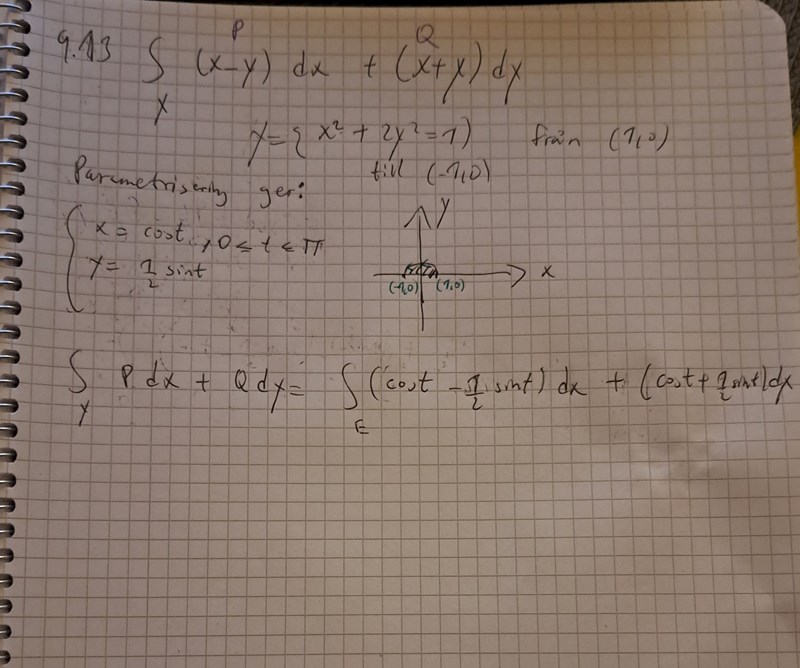 9.13 ∫γ (x-y) dx + (x+y) dy
P Q
γ = { x² + 2y² = 1 } från (1,0)
till (-1,0)
Parametrisering ger:
{ x = cost , 0 ≤ t ≤ π
y = 1/2 sint
y
x
(-1,0) (1,0)
∫γ P dx + Q dy = ∫E (cost - 1/2 sint) dx + (cost + 1/2 sint) dx